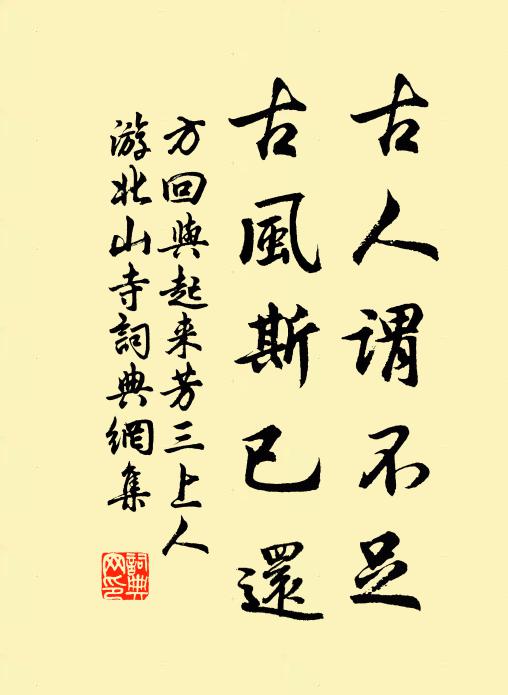 古人謂不足
古風斯已還
方回與起来芳三上人
游北山寺詞典網集
詞典网印